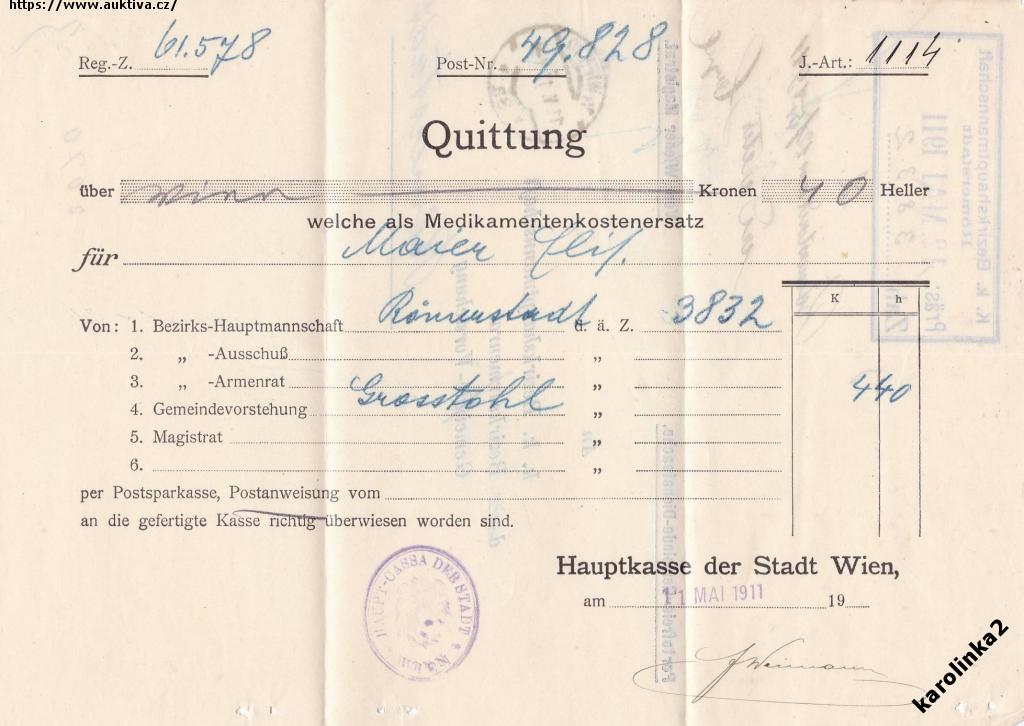 https://www.auktiva.cz/
Reg.-Z. 61.578 Post-Nr. 49.828 J.-Art.: 1114
Quittung
über vier Kronen 40 Heller
welche als Medikamentenkostenersatz
für Maier Elis.
K h
Von: 1. Bezirks-Hauptmannschaft Römerstadt d. ä. Z. 3832
2. „ -Ausschuß „
3. „ -Armenrat „ 440
4. Gemeindevorstehung Grosstohl „
5. Magistrat „
6. „
per Postsparkasse, Postanweisung vom
an die gefertigte Kasse richtig überwiesen worden sind.
Hauptkasse der Stadt Wien,
am 11 MAI 1911 19
HAUPT-CASSA DER STADT WIEN
karolinka2
K. k. Bezirkshauptmannschaft
Römerstadt
MAI 1911
Zahl 3832